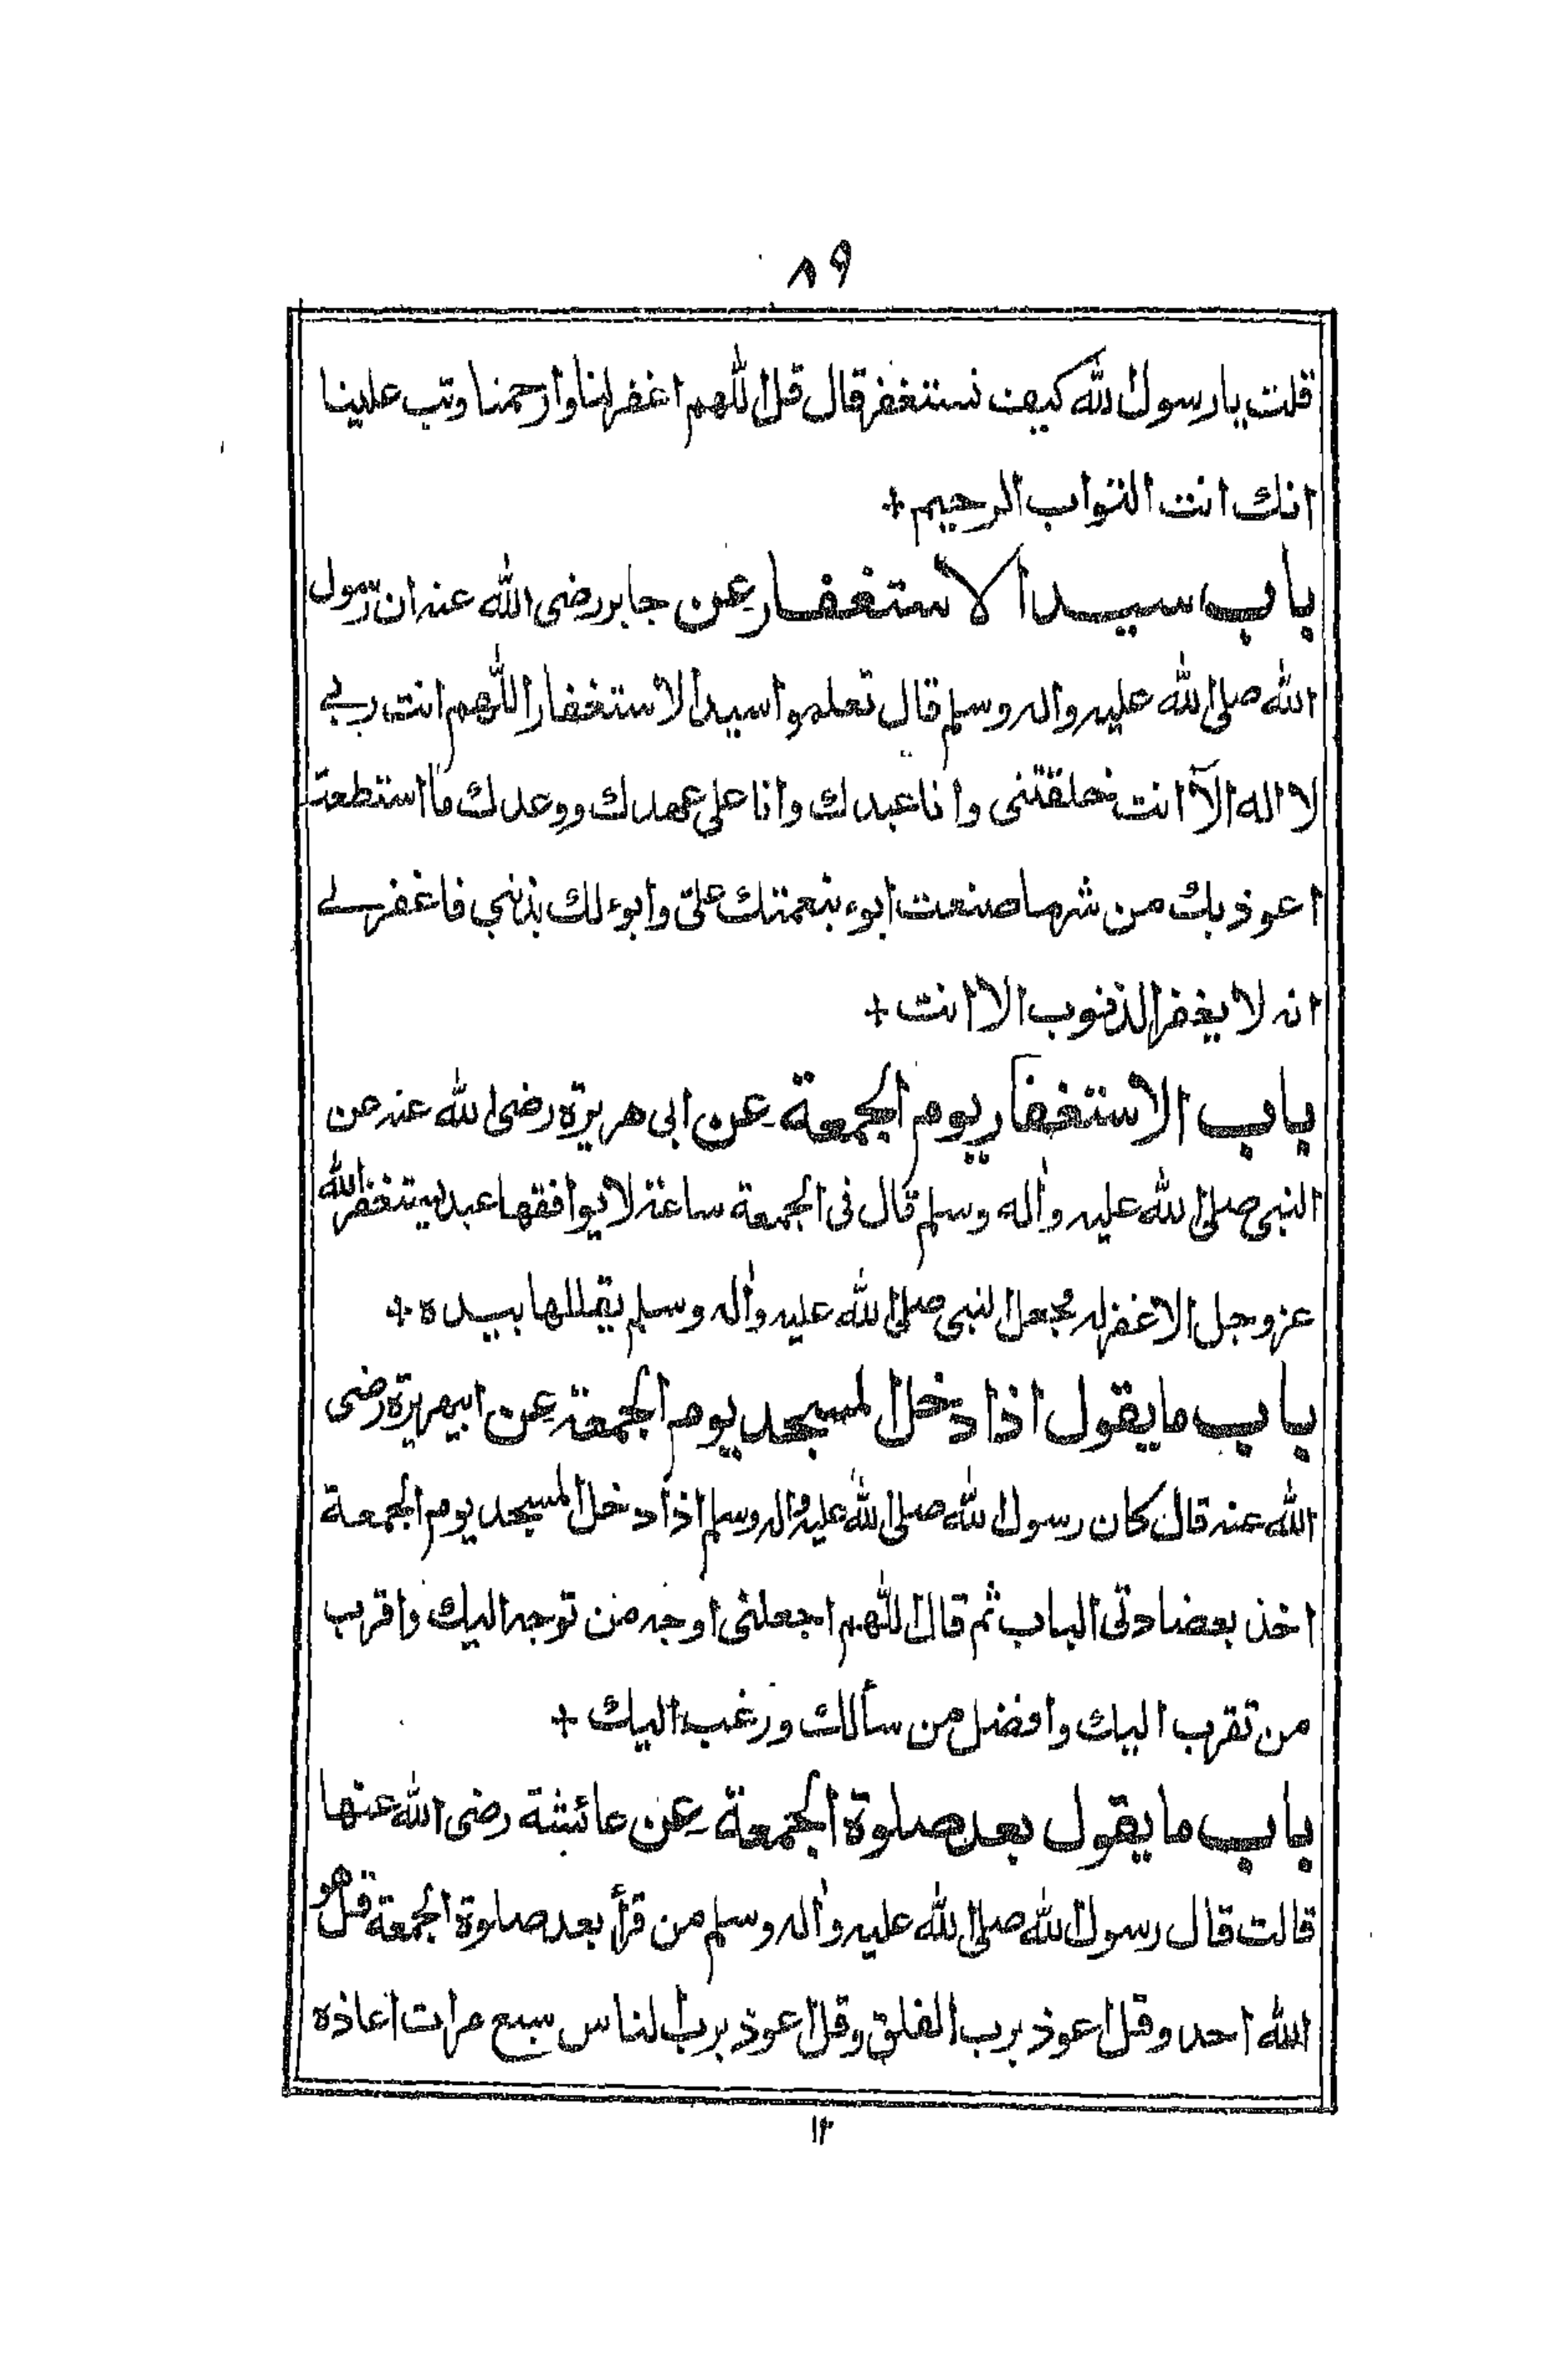 ٨٩
قلت يا رسول الله كيف نستغفر قال قل اللهم اغفر لنا وارحمنا وتب علينا
انك انت التواب الرحيم +
باب سيد الاستغفار عن جابر رضى الله عنه ان رسول
الله صلى الله عليه واله وسلم قال تعلموا سيد الاستغفار اللهم انت ربي
لا اله الآ انت خلقتنى وانا عبدك وانا على عهدك ووعدك ما استطعت
اعوذ بك من شر ما صنعت ابوء بنعمتك علىّ وابوء لك بذنبي فاغفر لي
انه لا يغفر الذنوب الا انت +
باب الاستغفار يوم الجمعة عن ابى هريرة رضى الله عنه عن
النبى صلى الله عليه واٰله وسلم قال فى الجمعة ساعة لا يوافقها عبد يستغفر الله
عز وجل الا غفر له فجعل النبى صلى الله عليه واٰله وسلم يقللها بيده +
باب ما يقول اذا دخل المسجد يوم الجمعة عن ابيهريرة رضى
الله عنه قال كان رسول الله صلى الله عليه واله وسلم اذا دخل المسجد يوم الجمعة
اخذ بعضادتى الباب ثم قال اللهم اجعلنى اوجه من توجه اليك واقرب
من تقرب اليك وافضل من سألك ورغب اليك +
باب ما يقول بعد صلوة الجمعة عن عائشة رضى الله عنها
قالت قال رسول الله صلى الله عليه واٰله وسلم من قرأ بعد صلوة الجمعة قل هو
الله احد وقل اعوذ برب الفلق وقل اعوذ برب الناس سبع مرات اعاذه
١٢